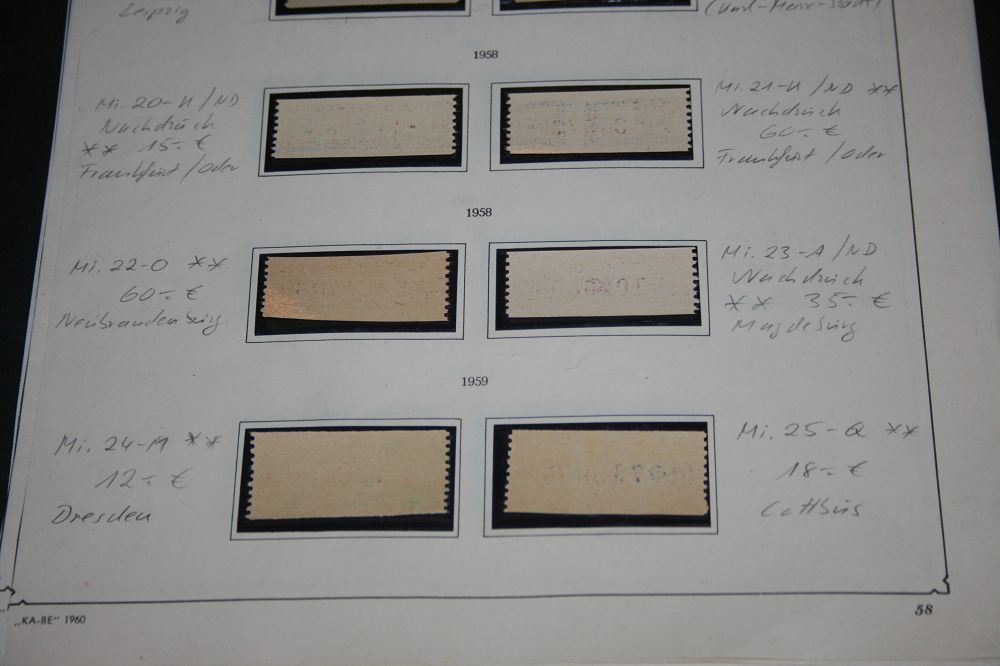 Leipzig
(Karl-Marx-Stadt)
1958
Mi. 20-H/ND
Nachdruck
** 15.- €
Frankfurt/Oder
Mi. 21-H/ND **
Nachdruck
60.- €
Frankfurt/Oder
1958
Mi. 22-O **
60.- €
Neubrandenburg
Mi. 23-A/ND
Nachdruck
** 35.- €
Magdeburg
1959
Mi. 24-M **
12.- €
Dresden
Mi. 25-Q **
18.- €
Cottbus
„KA-BE" 1960
58